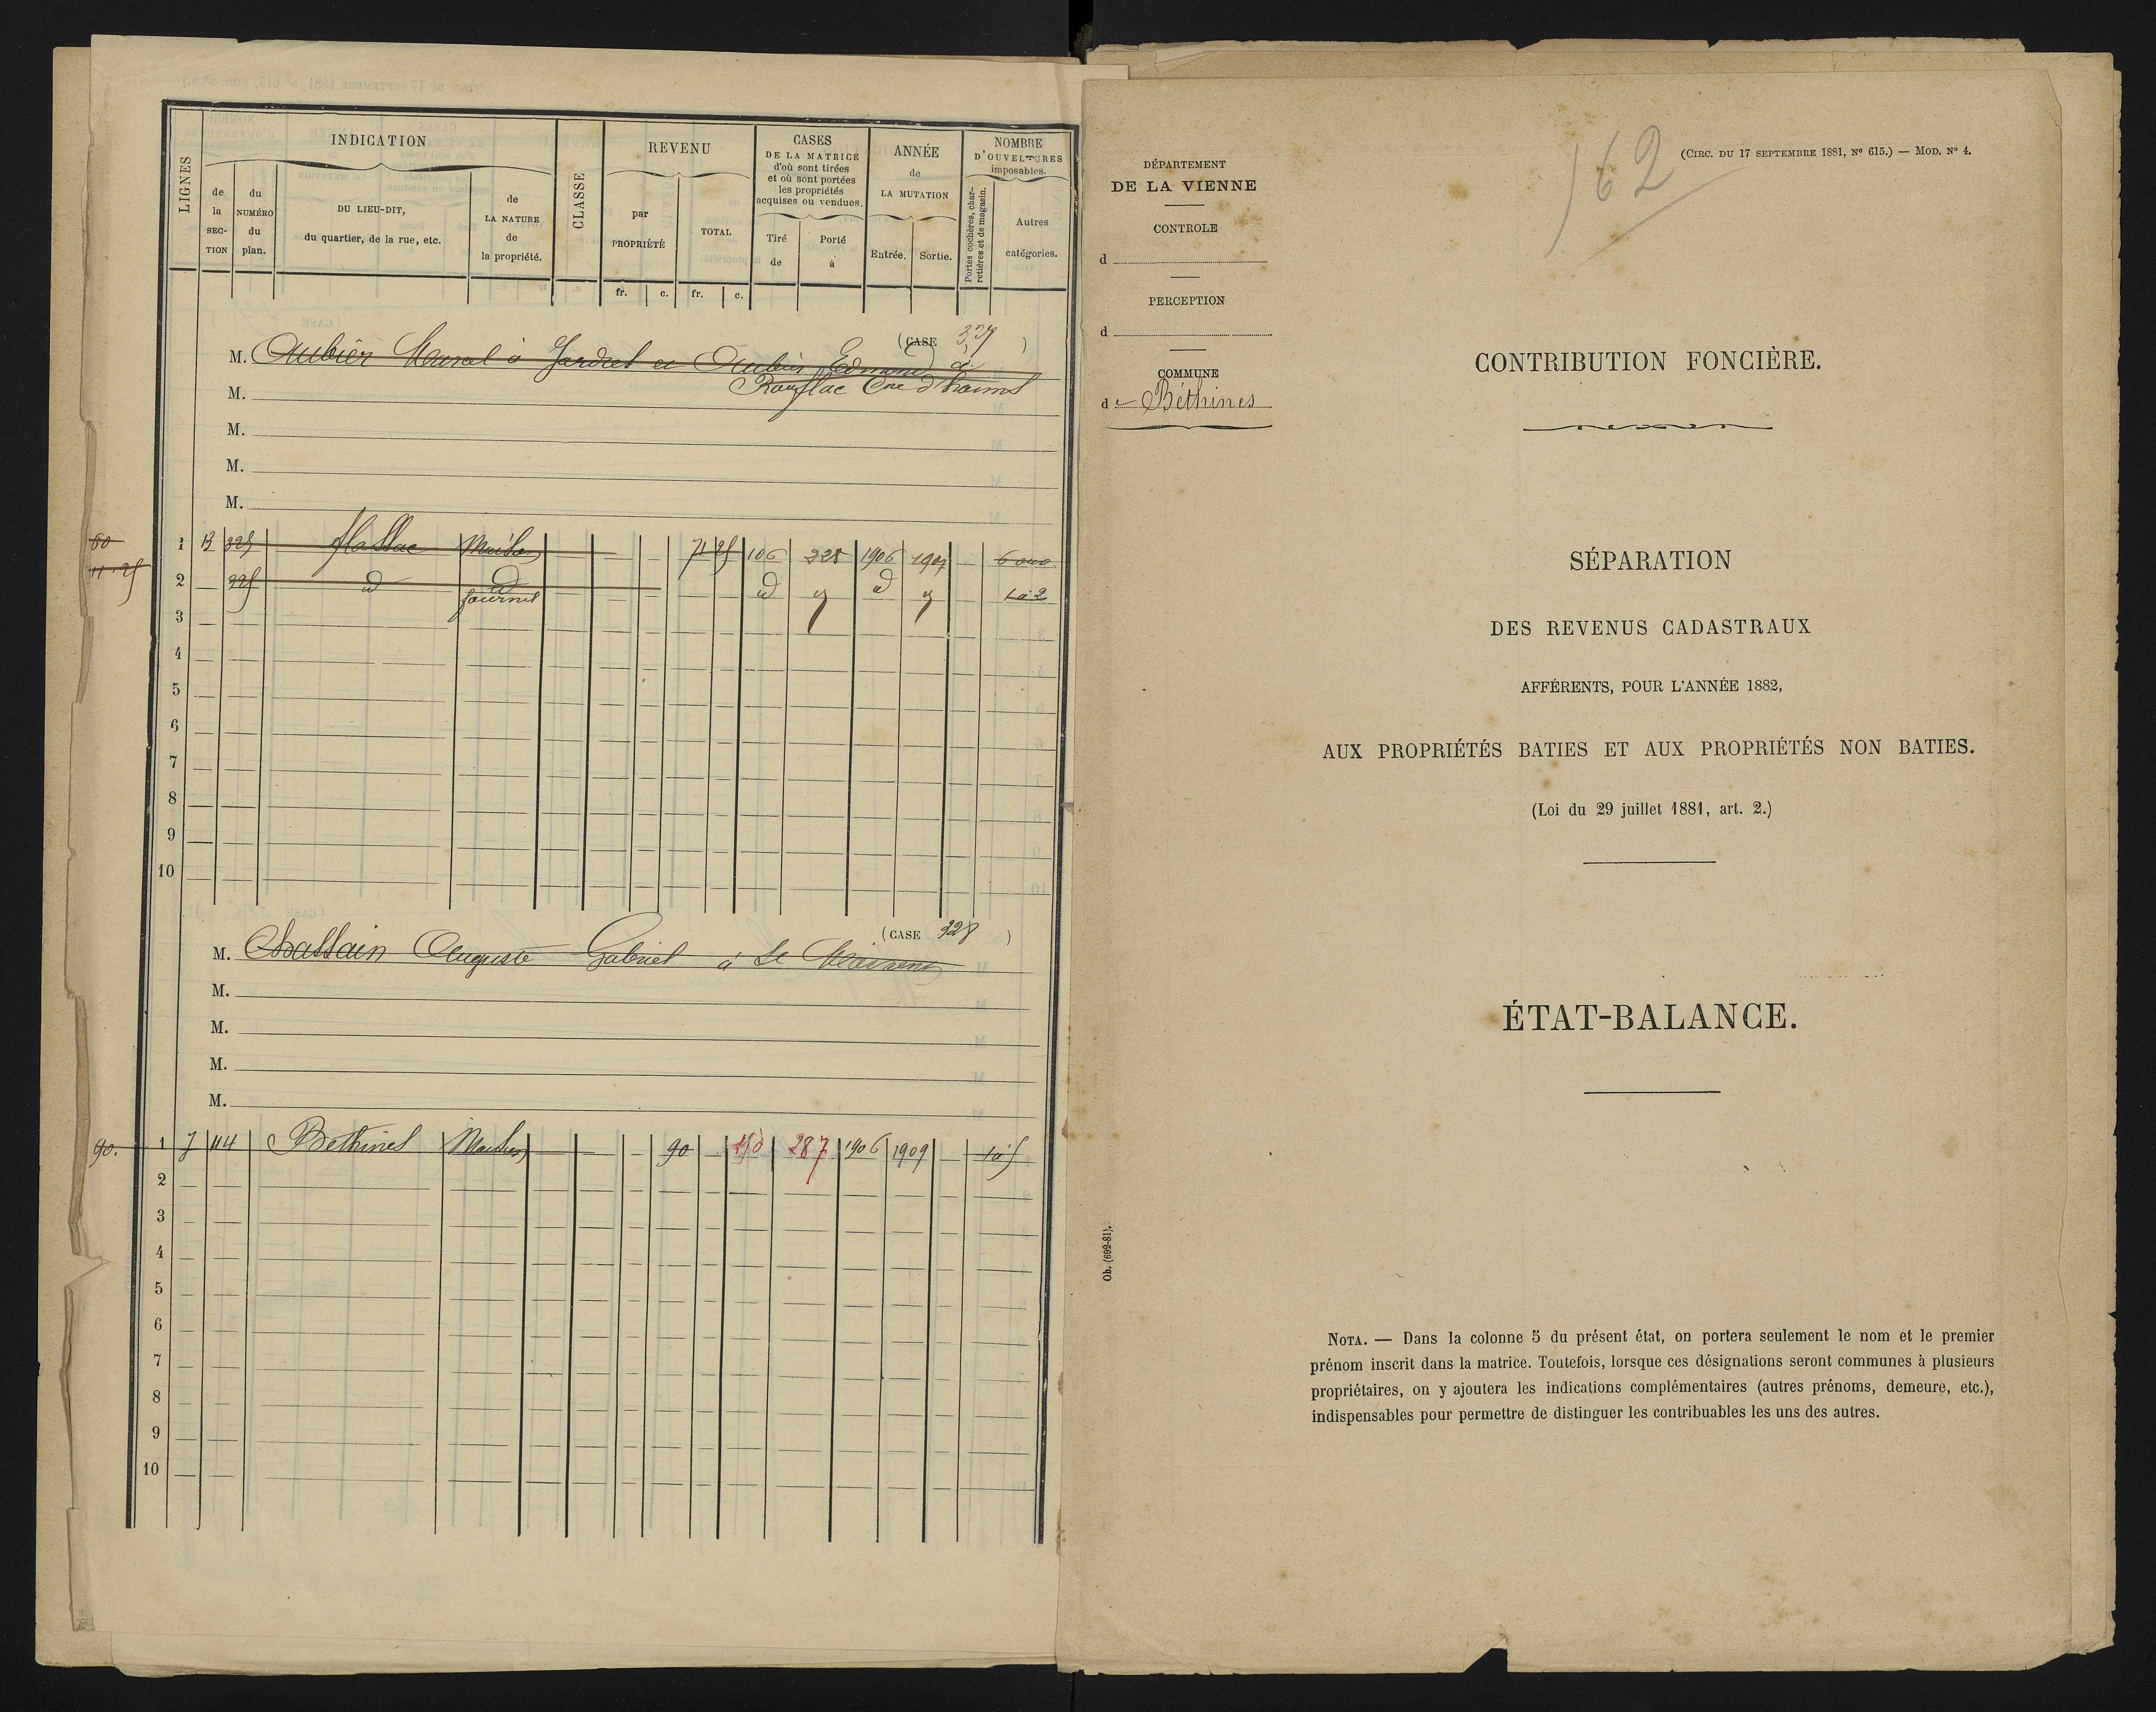 LIGNES
INDICATION
de la SECTION
du NUMÉRO du plan.
DU LIEU-DIT, du quartier, de la rue, etc.
de LA NATURE de la propriété.
CLASSE
REVENU
par PROPRIÉTÉ
TOTAL
CASES DE LA MATRICE d'où sont tirées et où sont portées les propriétés acquises ou vendues.
Tiré de
Porté à
ANNÉE de LA MUTATION
Entrée.
Sortie.
NOMBRE D'OUVERTURES imposables.
Portes cochères, charretières et de magasin.
Autres catégories.
fr. c. fr. c.
(CASE )
M. Aubier à et Aubier Edmond à
M. Cne d'
M.
M.
M.
1 B 325 71 25 106 328 1906 1907
2 325 id id id id 1 à 2
fournil
3
4
5
6
7
8
9
10
(CASE 328 )
M. Chassain Auguste Gabriel à St
M.
M.
M.
M.
90. 1 J 114 Béthines Maison 90 150 287 1906 1909 1 à 5
2
3
4
5
6
7
8
9
10
162
(CIRC. DU 17 SEPTEMBRE 1881, Nº 615.) — MOD. Nº 4.
DÉPARTEMENT
DE LA VIENNE
CONTROLE
d
PERCEPTION
d
COMMUNE
de Béthines
CONTRIBUTION FONCIÈRE.
SÉPARATION
DES REVENUS CADASTRAUX
AFFÉRENTS, POUR L'ANNÉE 1882,
AUX PROPRIÉTÉS BATIES ET AUX PROPRIÉTÉS NON BATIES.
(Loi du 29 juillet 1881, art. 2.)
ÉTAT-BALANCE.
Ob. (692-81).
NOTA. — Dans la colonne 5 du présent état, on portera seulement le nom et le premier
prénom inscrit dans la matrice. Toutefois, lorsque ces désignations seront communes à plusieurs
propriétaires, on y ajoutera les indications complémentaires (autres prénoms, demeure, etc.),
indispensables pour permettre de distinguer les contribuables les uns des autres.